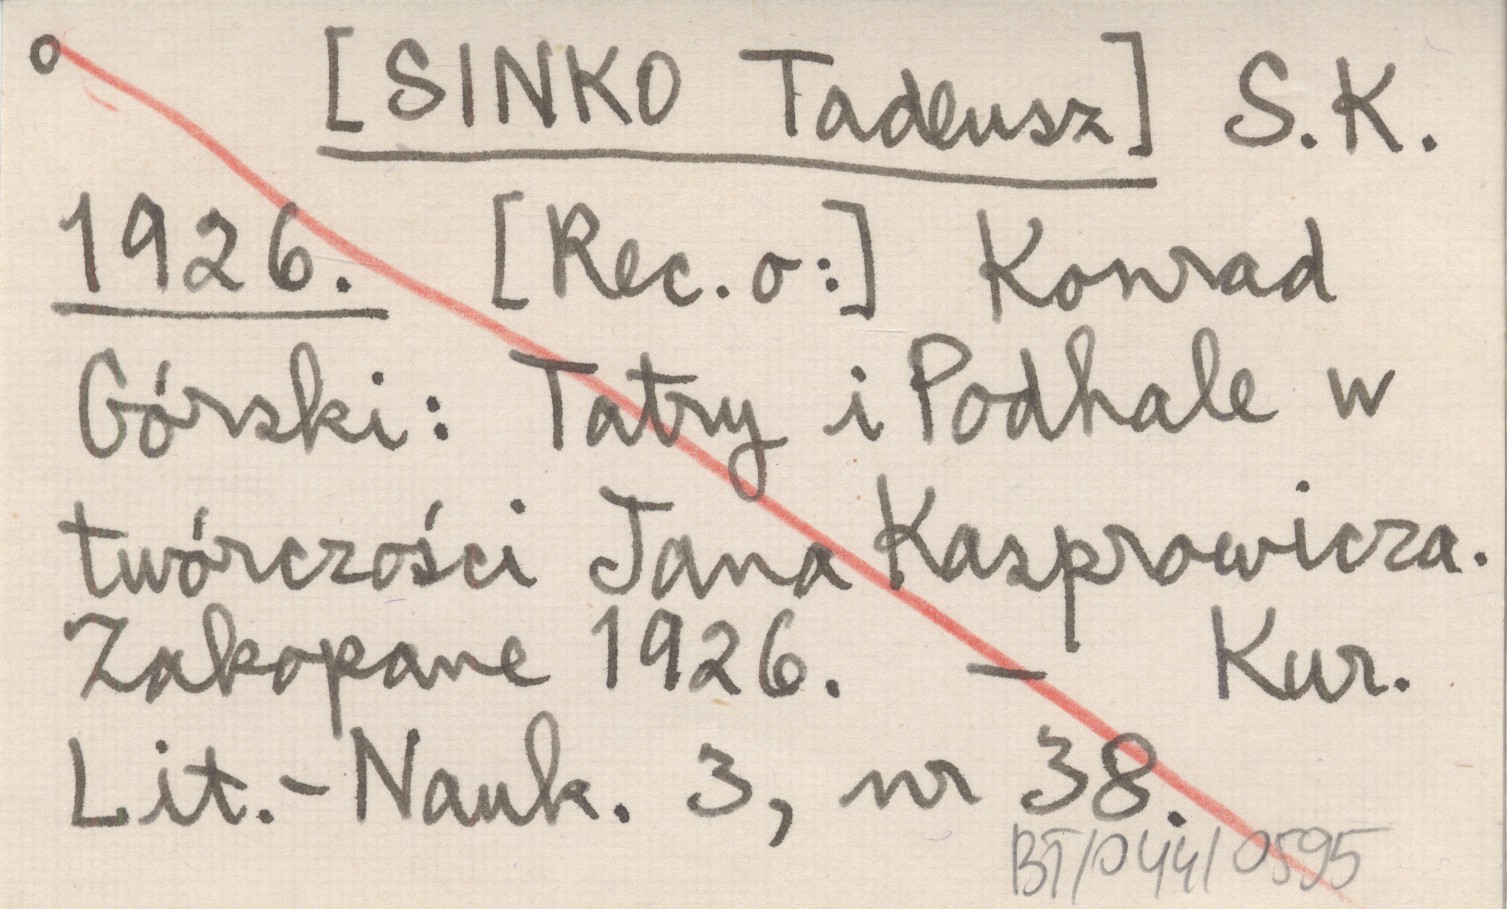 o [SINKO Tadeusz] S.K.
1926. [Rec. o:] Konrad
Górski: Tatry i Podhale w
twórczości Jana Kasprowicza.
Zakopane 1926. – Kur.
Lit.-Nauk. 3, nr 38.
BT/044/0595